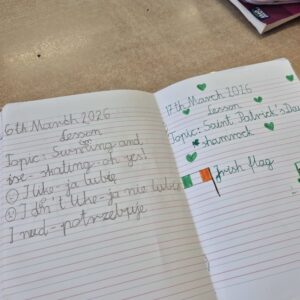 6th March 2026
Lesson
Topic: Swimming and
ice-skating-oh yes!
I like-ja lubię
I don't like-ja nie lubię
I need-potrzebuję
17th March 2026
Lesson
Topic: Saint Patrick's Day
shamrock
Irish flag